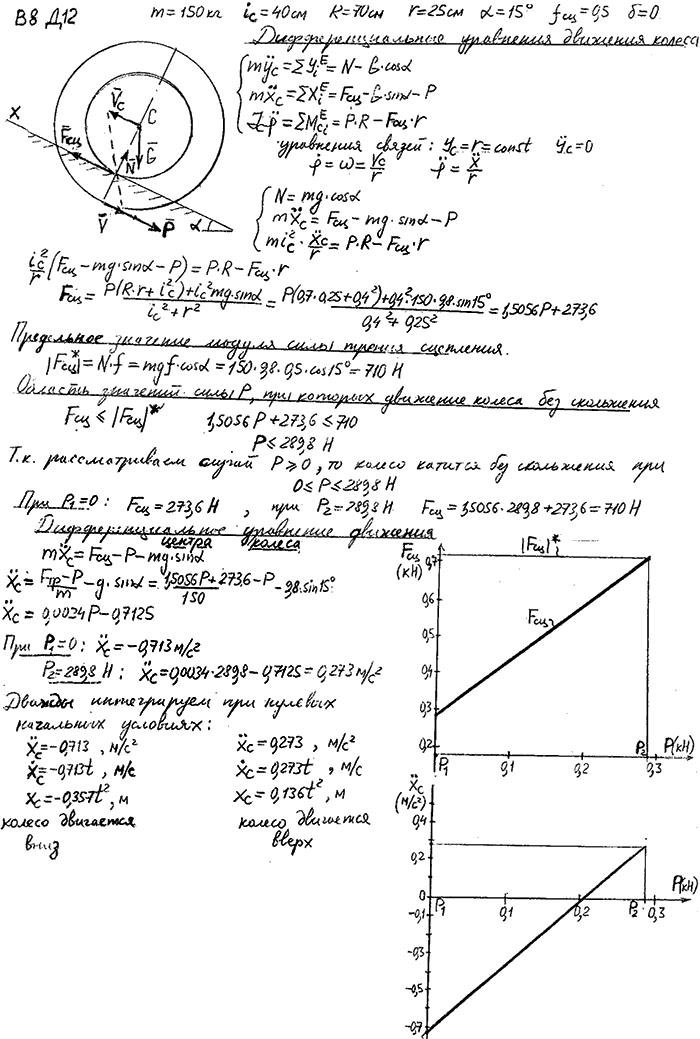 В8 Д12 m = 150 кг i_c = 40 см R = 70 см r = 25 см α = 15° f_сц = 0,5 δ = 0
Дифференциальные уравнения движения колеса
mÿ_c = ΣY_i^E = N - G·cosα
mẍ_c = ΣX_i^E = F_сц - G·sinα - P
J_c·φ̈ = ΣM_ci^E = P·R - F_сц·r
уравнения связей: y_c = r = const ÿ_c = 0
φ̇ = ω = V_c/r φ̈ = ẍ/r
N = mg·cosα
mẍ_c = F_сц - mg·sinα - P
m i_c²·ẍ_c/r = P·R - F_сц·r
X V̄_c C F̄_сц N̄ Ḡ V̄ P̄ α
i_c²/r (F_сц - mg·sinα - P) = P·R - F_сц·r
F_сц = (P(R·r + i_c²) + i_c² mg sinα)/(i_c² + r²) = (P(0,7·0,25 + 0,4²) + 0,4²·150·9,8·sin15°)/(0,4² + 0,25²) = 1,5056P + 273,6
Предельное значение модуля силы трения сцепления.
|F_сц*| = N·f = mgf·cosα = 150·9,8·0,5·cos15° = 710 Н
Область значений силы P, при которых движение колеса без скольжения
F_сц ≤ |F_сц|* 1,5056P + 273,6 ≤ 710
P ≤ 289,8 Н
Т.к. рассматриваем случай P ≥ 0, то колесо катится без скольжения при
0 ≤ P ≤ 289,8 Н
При P₁ = 0: F_сц = 273,6 Н, при P₂ = 289,8 Н F_сц = 1,5056·289,8 + 273,6 = 710 Н
Дифференциальное уравнение движения
центра колеса
mẍ_c = F_сц - P - mg·sinα
ẍ_c = (F_тр - P)/m - g·sinα = (1,5056P + 273,6 - P)/150 - 9,8·sin15°
ẍ_c = 0,0034P - 0,7125
При P₁ = 0: ẍ_c = -0,713 м/с²
P₂ = 289,8 Н: ẍ_c = 0,0034·289,8 - 0,7125 = 0,273 м/с²
Дважды интегрируем при нулевых
начальных условиях:
ẍ_c = -0,713, м/с² ẍ_c = 0,273, м/с²
ẋ_c = -0,713t, м/с ẋ_c = 0,273t, м/с
x_c = -0,357t², м x_c = 0,136t², м
колесо двигается колесо двигается
вниз вверх
F_сц |F_сц|*
(кН) 0,7
0,6
F_сц
0,5
0,4
0,3
0,2
P₁ 0,1 0,2 P₂ 0,3 P(кН)
ẍ_c
(м/с²)
0,4
0,2
P(кН)
0
P₁ 0,1 0,2 P₂ 0,3
-0,1
-0,3
-0,5
-0,7